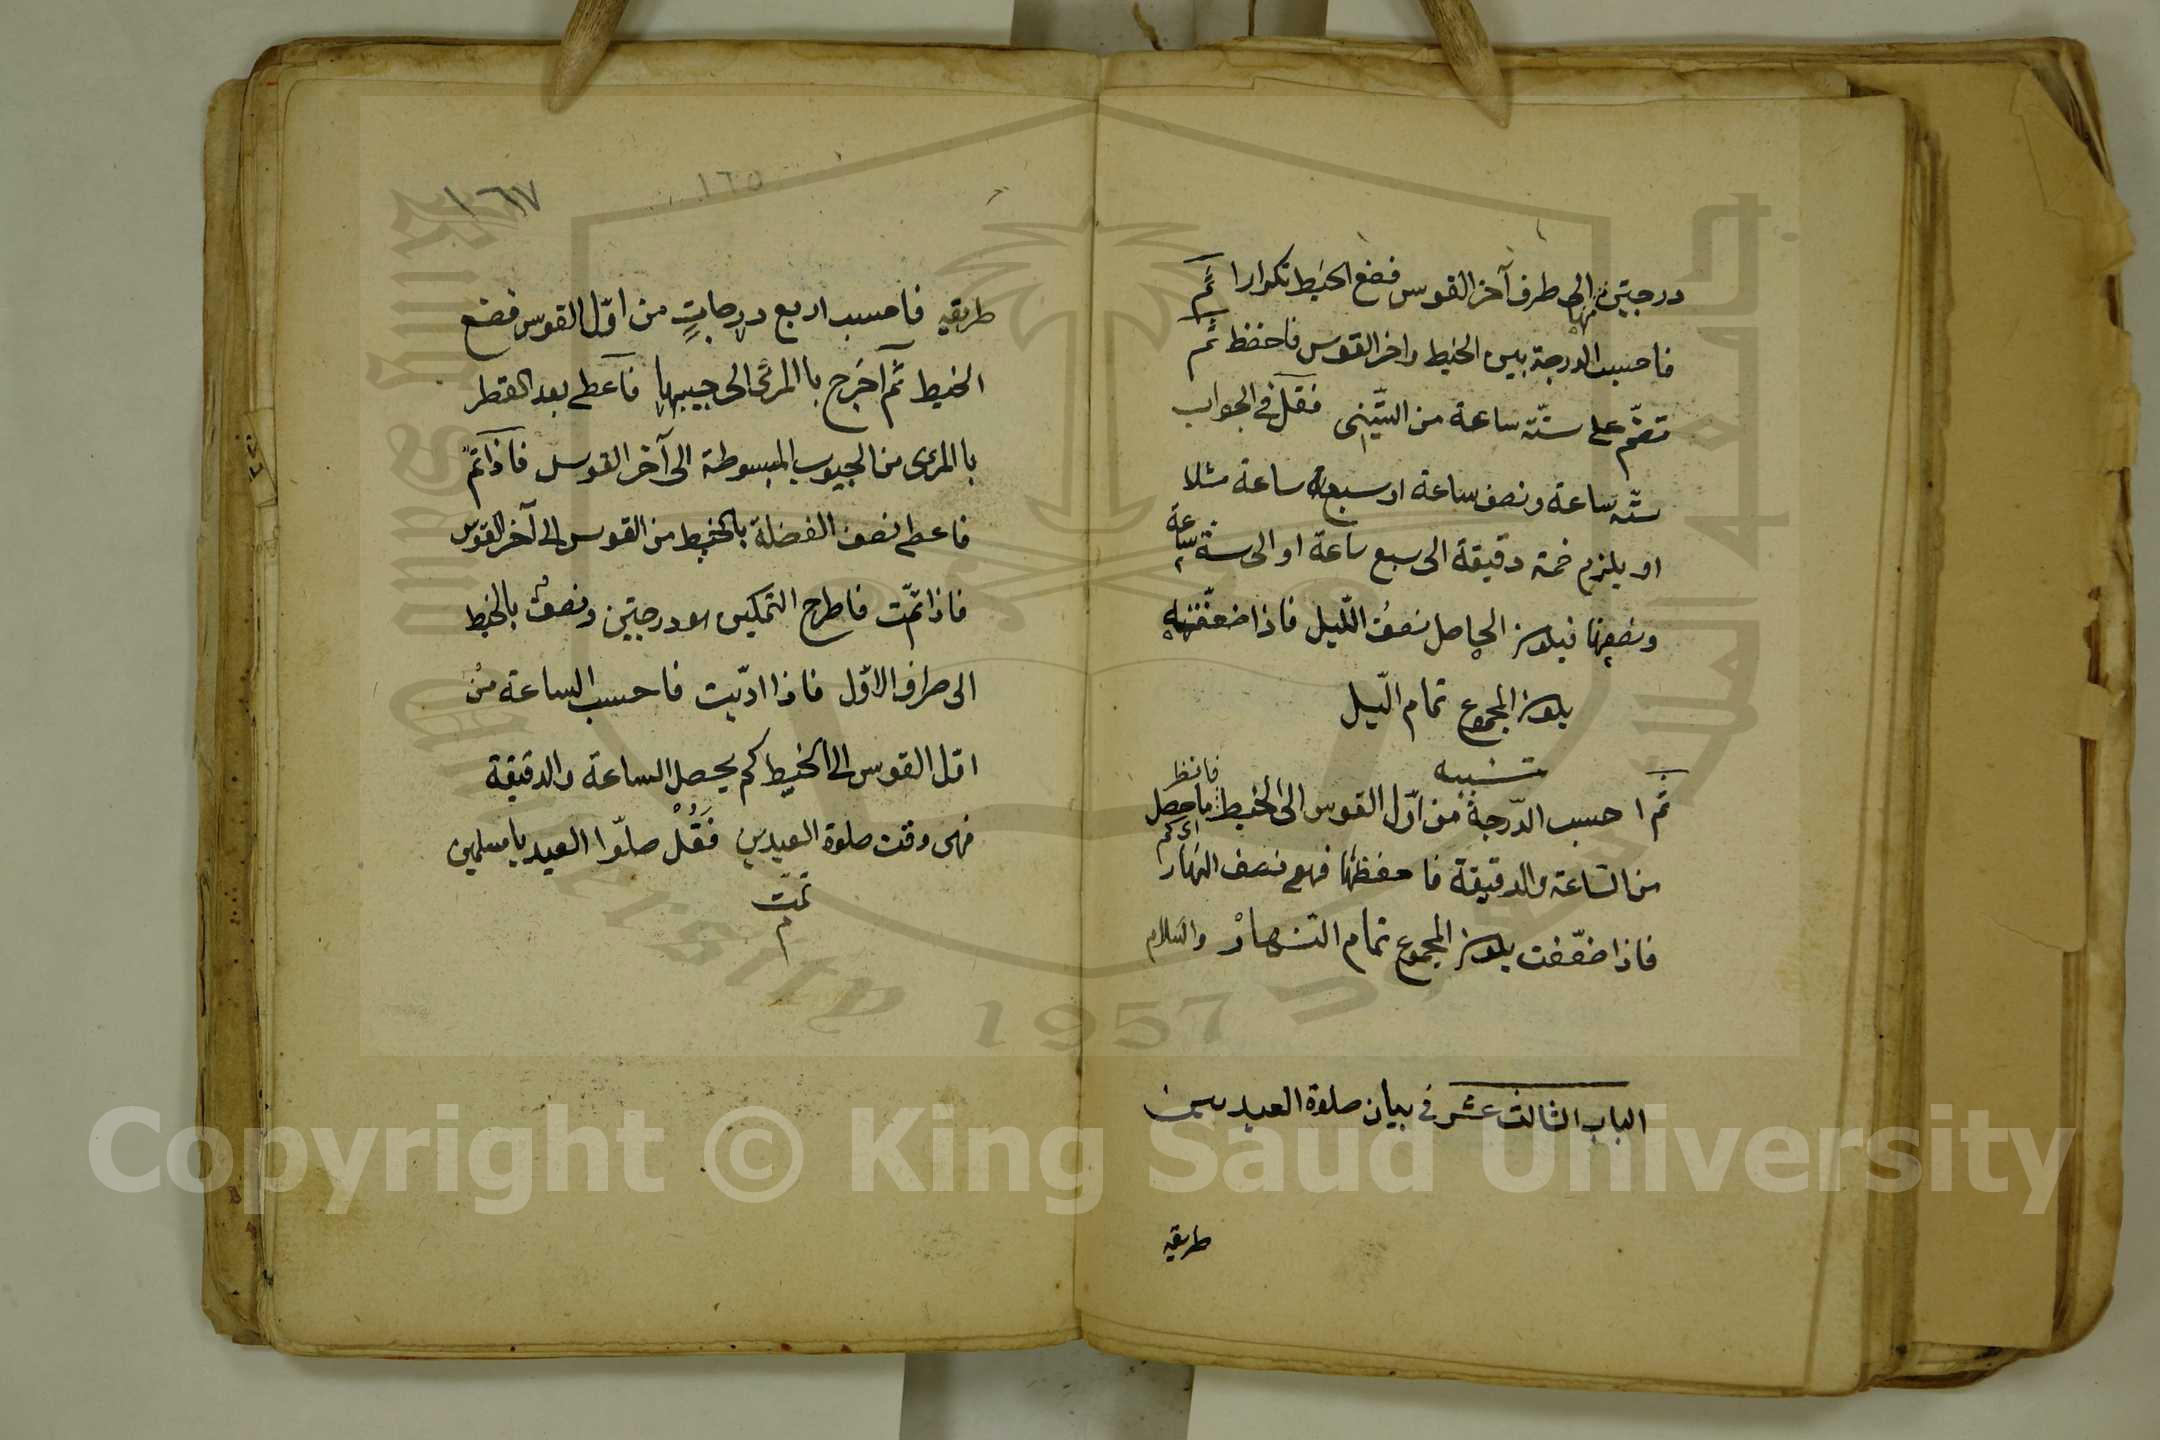 درجتين منها الى طرف آخر القوس فضع الخيط تكرارا ثم
فاحسب الدرجة بين الخيط واخر القوس فاحفظ ثم
تضم على ستة ساعة من الستيني فقل في الجواب
ستة ساعة ونصف ساعة او سبعة ساعة مثلا
او يلزم خمة دقيقة الى سبع ساعة او الى ستة ساعة
ونصفها فيكون الحاصل نصف الليل فاذا ضعفتها
يكون المجموع تمام اليل
تنبيه
ثم احسب الدرجة من اول القوس الى الخيط فانظر ما حصل
اى كم
من الساعة والدقيقة فاحفظها فهو نصف النهار
فاذا ضعفت يكون المجموع تمام النهار والسلام
الباب الثالث عشر في بيان صلوة العيدين
طريقه
١٦٧
١٦٥
طريقه فاحسب اربع درجات من اول القوس فضع
الخيط ثم آخرج باالمرئ الى جيبها فاعط بعد القطر
باالمرى من الجيوب المبسوطة الى آخر القوس فاذا تم
فاعط نصف الفضلة بالخيط من القوس الى آخر القوس
فاذا تمت فاطرح التمكين درجتين ونصف بالخيط
الى طراف الاول فاذا ادّيت فاحسب الساعة من
اول القوس الى الخيط كم يحصل الساعة والدقيقة
فهى وقت صلوة العيدين فَقُلْ صلّوا العيد يا مسلمين
تمت
م
Copyright © King Saud University
1957